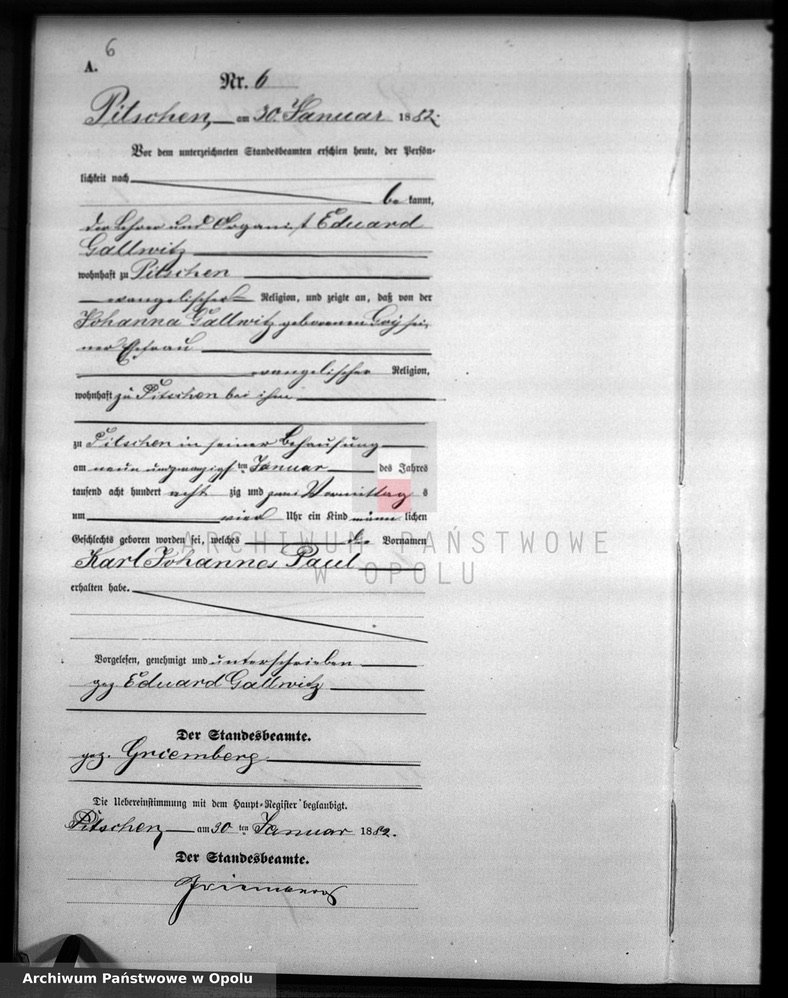 6
A.
Nr. 6
Pitschen, am 30. Januar 1882.
Vor dem unterzeichneten Standesbeamten erschien heute, der Persön-
lichkeit nach
be kannt,
der Lehrer und Organist Eduard
Gallwitz
wohnhaft zu Pitschen
evangelischer Religion, und zeigte an, daß von der
Johanna Gallwitz geborenen sei-
ner Ehefrau
evangelischer Religion,
wohnhaft zu Pitschen bei ihm
zu Pitschen in seiner Behausung
am neun und zwanzigsten Januar des Jahres
tausend acht hundert acht zig und zwei Vormittag s
um vier Uhr ein Kind männ lichen
Geschlechts geboren worden sei, welches die Vornamen
Karl Johannes Paul
erhalten habe.
ARCHIWUM PAŃSTWOWE
W OPOLU
Vorgelesen, genehmigt und unterschrieben
gez. Eduard Gallwitz
Der Standesbeamte.
gez. Griemberg.
Die Uebereinstimmung mit dem Haupt-Register beglaubigt.
Pitschen, am 30 ten Januar 1882.
Der Standesbeamte.
Griemberg
Archiwum Państwowe w Opolu